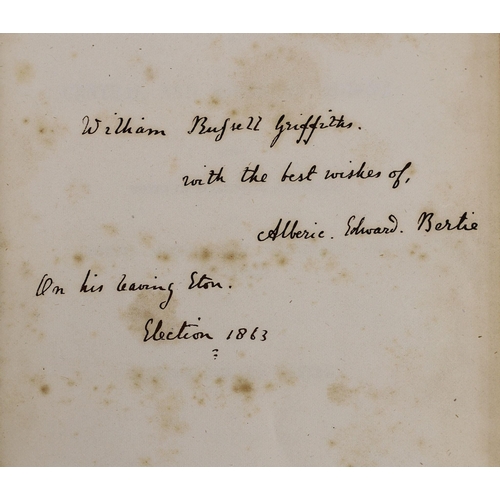 William Russell Griffiths.
with the best wishes of,
Alberic. Edward. Bertie
On his leaving Eton.
Election 1863